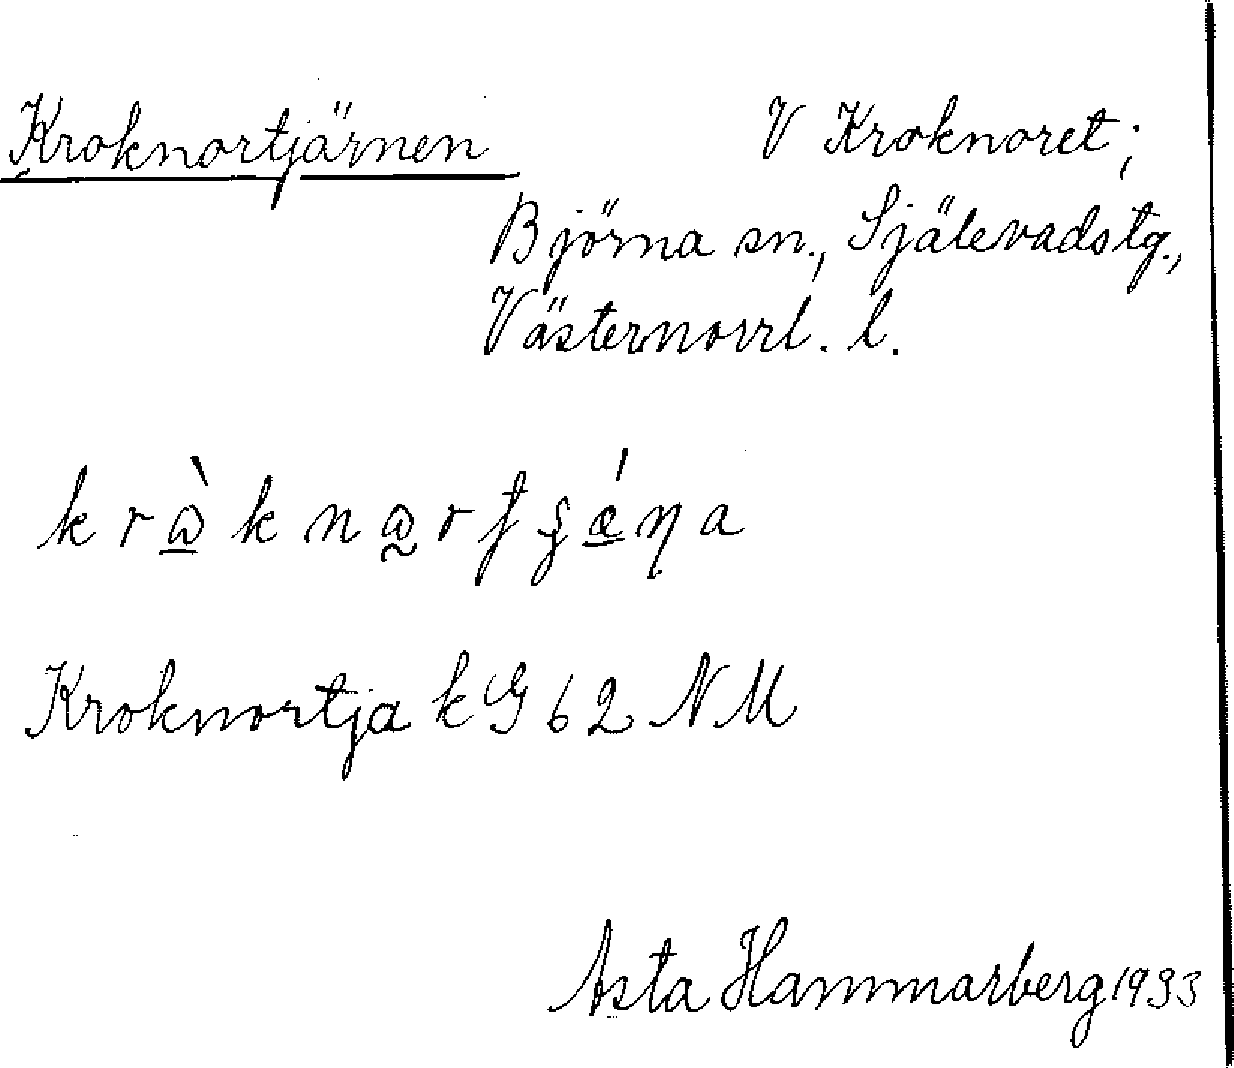 Kroknortjärnen V Kroknoret;
Björna sn., Själevadstg.,
Västernorrl. l.
Kroknortja k G 62 NM
Asta Hammarberg 1933